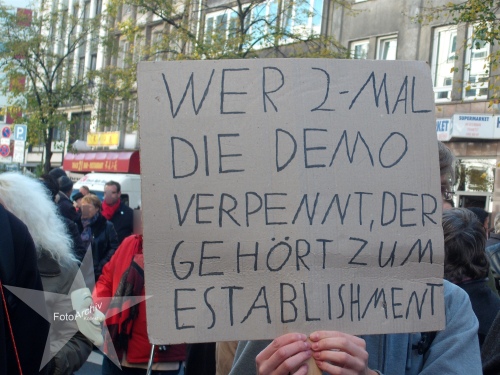 WER 2-MAL
DIE DEMO
VERPENNT, DER
GEHÖRT ZUM
ESTABLISHMENT
SUPERMARKET
FotoArchiv
P